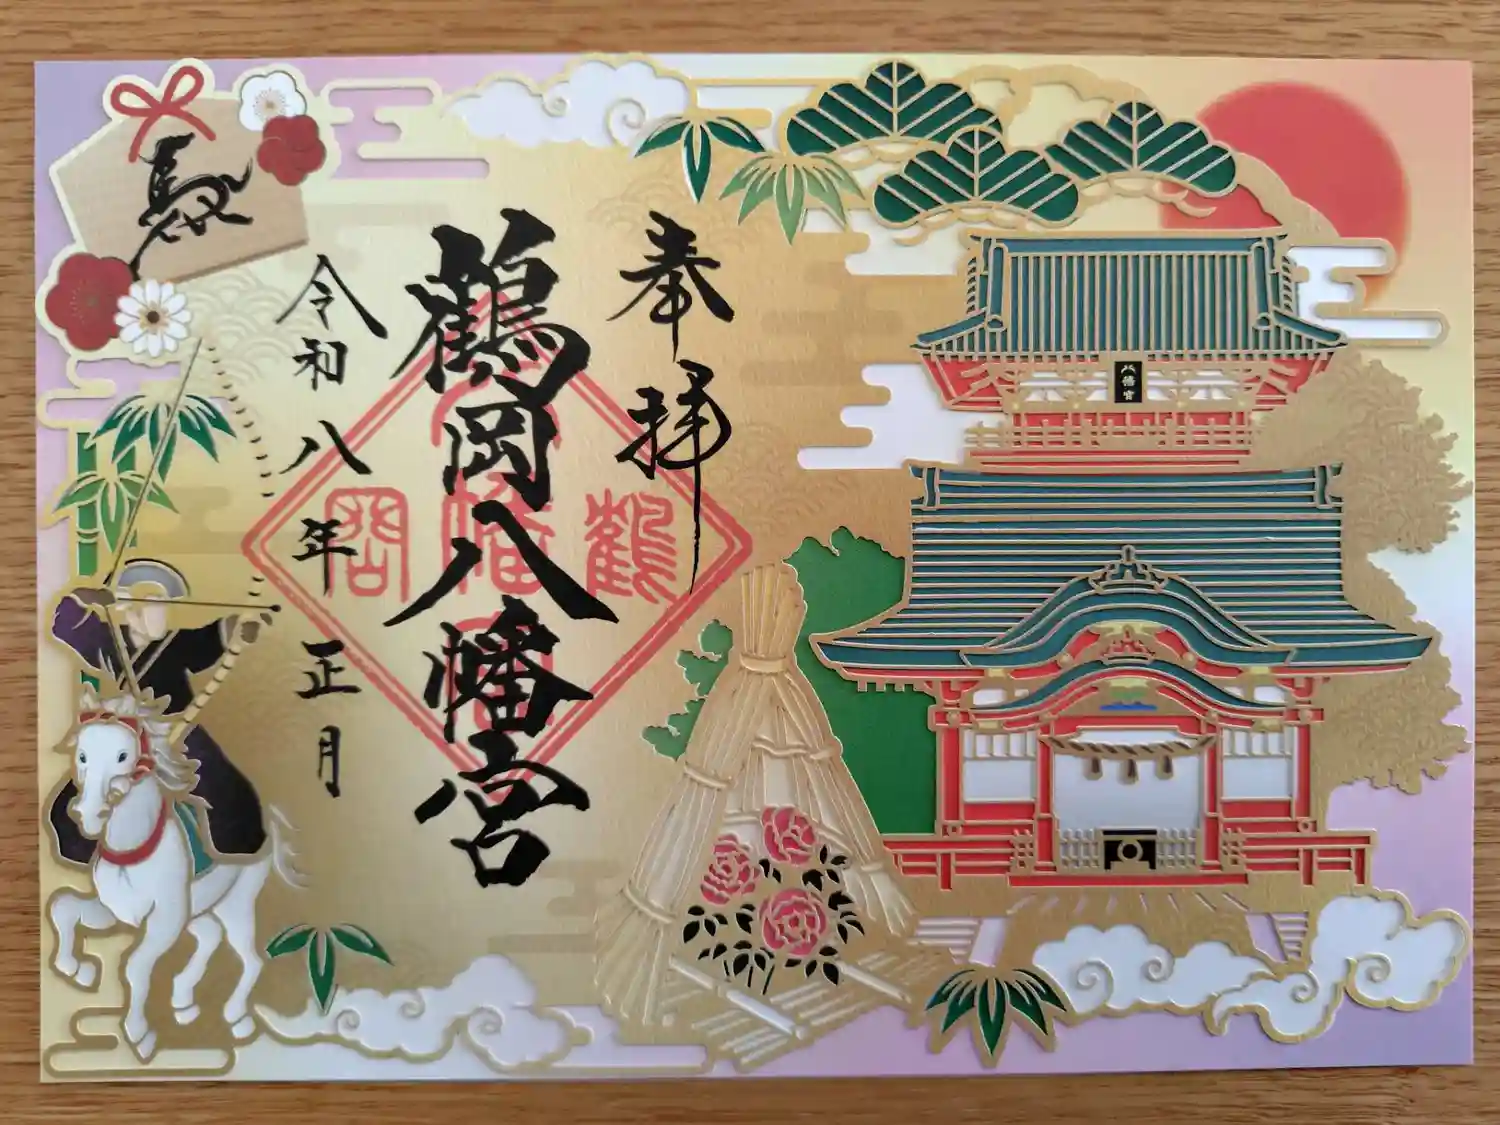 奉拝
鶴岡八幡宮
令和八年正月
鶴
幡
岡
八幡宮